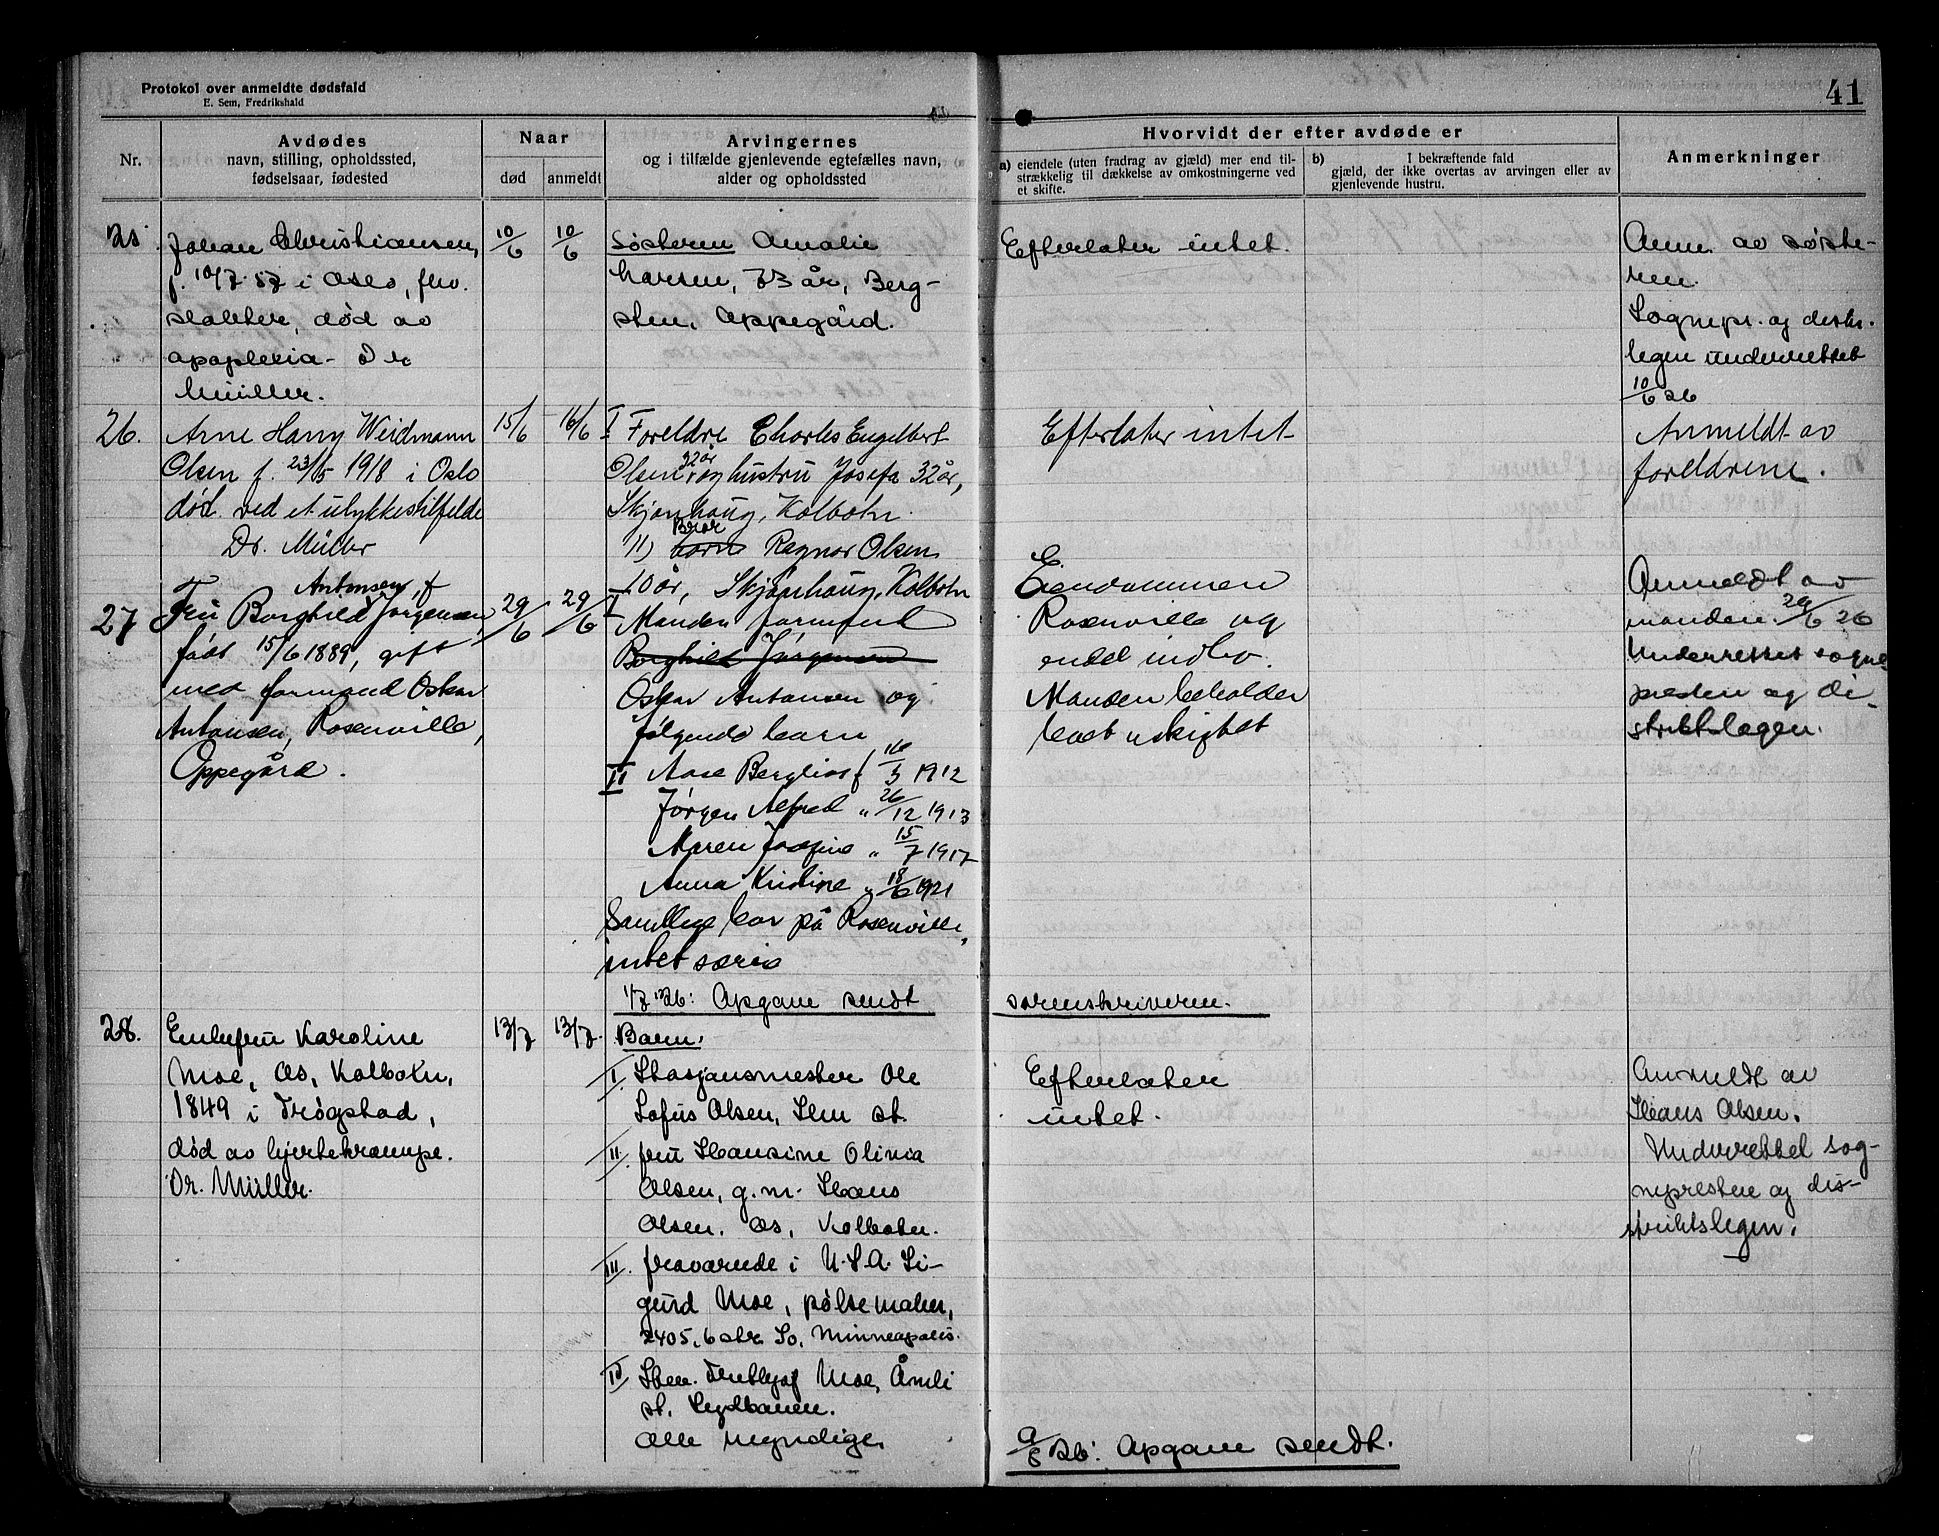 Protokol over anmeldte dødsfald
E. Sem, Fredrikshald
41
Nr.
Avdødes
navn, stilling, opholdssted,
fødselsaar, fødested
Naar
død
anmeldt
Arvingernes
og i tilfælde gjenlevende egtefælles navn,
alder og opholdssted
Hvorvidt der efter avdøde er
a) eiendele (uten fradrag av gjæld) mer end til-
strækkelig til dækkelse av omkostningerne ved
et skifte.
b) I bekræftende fald
gjæld, der ikke overtas av arvingen eller av
gjenlevende hustru.
Anmerkninger
25.
Johan Christiansen,
f. 10/7 57 i Oslo, fhv.
slakter, død av
apoplexia - Dr
Müller.
10/6
10/6
Søsteren Amalie
Larsen, 73 år, Berg-
sten, Oppegård.
Efterlater intet.
Anm. av søste-
ren.
Sognepr. og distr.
legen underrettet
10/6 26
26.
Arne Harry Weidmann
Olsen f. 23/5 1918 i Oslo
død ved et ulykkestilfelde
Dr. Müller
15/6
16/6
I Foreldre Charles Engelbert
Olsen 32 år og hustru Josefa 32 år,
Skjønhaug, Kolbotn.
II) barn Bror Ragnar Olsen
10 år, Skjønhaug, Kolbotn
Efterlater intet
Anmeldt av
foreldrene.
27
Fru Borghild Antonsen, f Jørgensen,
født 15/6 1889, gift
med formand Oskar
Antonsen, Rosenville,
Oppegård.
29/6
29/6
I Manden formand
Borghild Jørgensen
Oskar Antonsen og
følgende barn
II Aase Bergliot f 16/3 1912
Jørgen Alfred " 26/12 1913
Maren Josefine " 15/7 1917
Anna Kristine " 18/6 1921
Samtlige bor på Rosenville,
intet særeie
Eiendommen
Rosenville og
endel indbo.
Manden beholder
boet uskiftet
Anmeldt av
manden. 29/6 26
Underrettet sogne-
presten og di-
striktslegen.
1/7 1926: Opgave sendt sorenskriveren.
28.
Enkefru Karoline
Moe, Ås, Kolbotn,
1849 i Trøgstad,
død av hjertekrampe.
Dr. Müller.
13/7
13/7.
Barn:
I. Stasjonsmester Ole
Lofus Olsen, Sem st.
II. fru Hansine Olivia
Olsen, g.m. Hans
Olsen. Ås, Kolbotn.
III. fraværende i U.S.A. Si-
gurd Moe, pølsemaker,
2405, 6 str So, Minneapolis.
IV Sten. Moe, Åmli
st.
Alle myndige.
Efterlater
intet.
Anmeldt av
Hans Olsen.
Underrettet sog-
nepresten og dis-
triktslegen.
9/8 26: Opgave sendt.